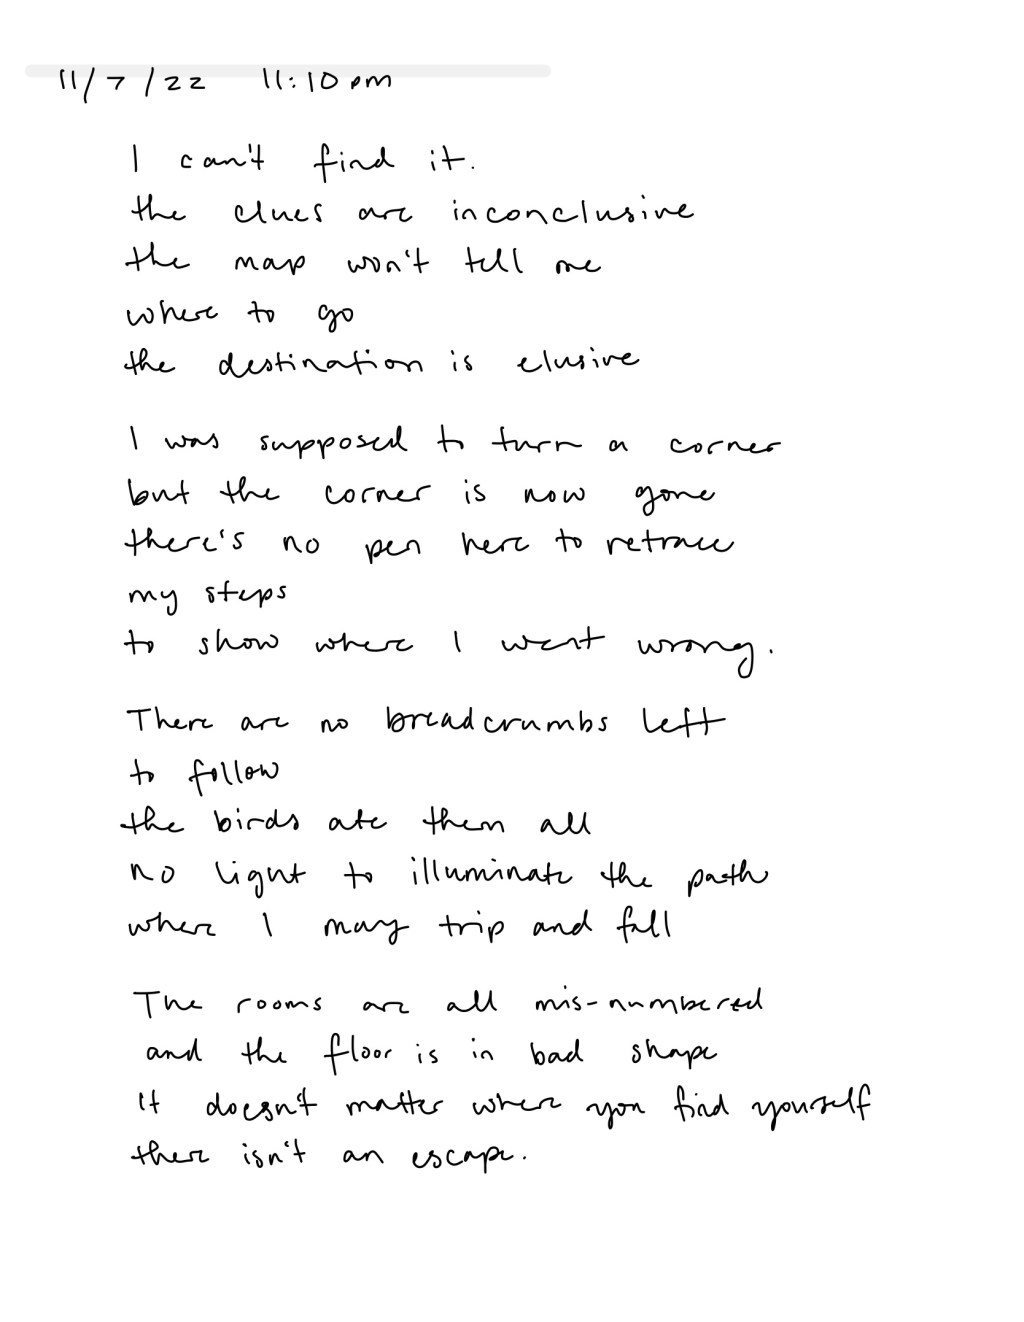 11/7/22 11:10 pm
I can't find it.
the clues are inconclusive
the map won't tell me
where to go
the destination is elusive
I was supposed to turn a corner
but the corner is now gone
there's no pen here to retrace
my steps
to show where I went wrong.
There are no breadcrumbs left
to follow
the birds ate them all
no light to illuminate the path
where I may trip and fall
The rooms are all mis-numbered
and the floor is in bad shape
It doesn't matter where you find yourself
there isn't an escape.